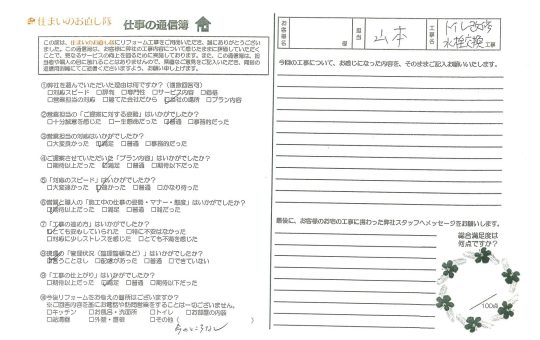 住まいのお直し隊 仕事の通信簿
この度は、住まいのお直し隊にリフォーム工事をご用命いただき、誠にありがとうござい
ました。この通信簿は、お客様に弊社の工事内容について感じたままに評価していただく
①弊社を選んでいただいた理由は何ですか？（複数回答可）
□対応スピード □評判 □専門性 □サービス内容 □価格
□営業担当の対応 □建てた会社だから □会社の場所 □プラン内容
②営業担当の「ご提案に対する姿勢」はいかがでしたか？
□十分誠意を感じた □一生懸命だった □普通 □事務的だった
③営業担当の対応はいかがでしたか？
□大変良かった □満足 □普通 □事務的だった
④ご提案させていただいた「プラン内容」はいかがでしたか？
□期待以上だった □満足 □普通 □期待以下だった
⑤「対応のスピード」はいかがでしたか？
□大変速かった □速かった □普通 □かなり待った
⑥営業と職人の「施工中の仕事の姿勢・マナー・態度」はいかがでしたか？
□期待以上だった □満足 □普通 □雑だった
⑦「工事の進め方」はいかがでしたか？
□とても安心していられた □特に不安はなかった
□対応に少しストレスを感じた □とても不満を感じた
⑧現場の「管理状況（整理整頓など）」はいかがでしたか？
□言うことなし □配慮があった □普通 □できていない
⑨「工事の仕上がり」はいかがでしたか？
□期待以上だった □満足 □普通 □期待以下だった
⑩今後リフォームをお考えの箇所はございますか？
※ご回答内容を基にお電話や訪問営業をすることは一切ございません。
□キッチン □お風呂・洗面所 □トイレ □お部屋の内装
□給湯器 □外壁・屋根 □その他（ ）
お客様名 様
担当 山本
工事名 トイレ改修
水栓交換 工事
今回の工事について、お感じになった内容を、そのままご記入お願いいたします。
最後に、お客様のお宅の工事に携わった弊社スタッフへメッセージをお願いします。
総合満足度は
何点ですか？
／100点